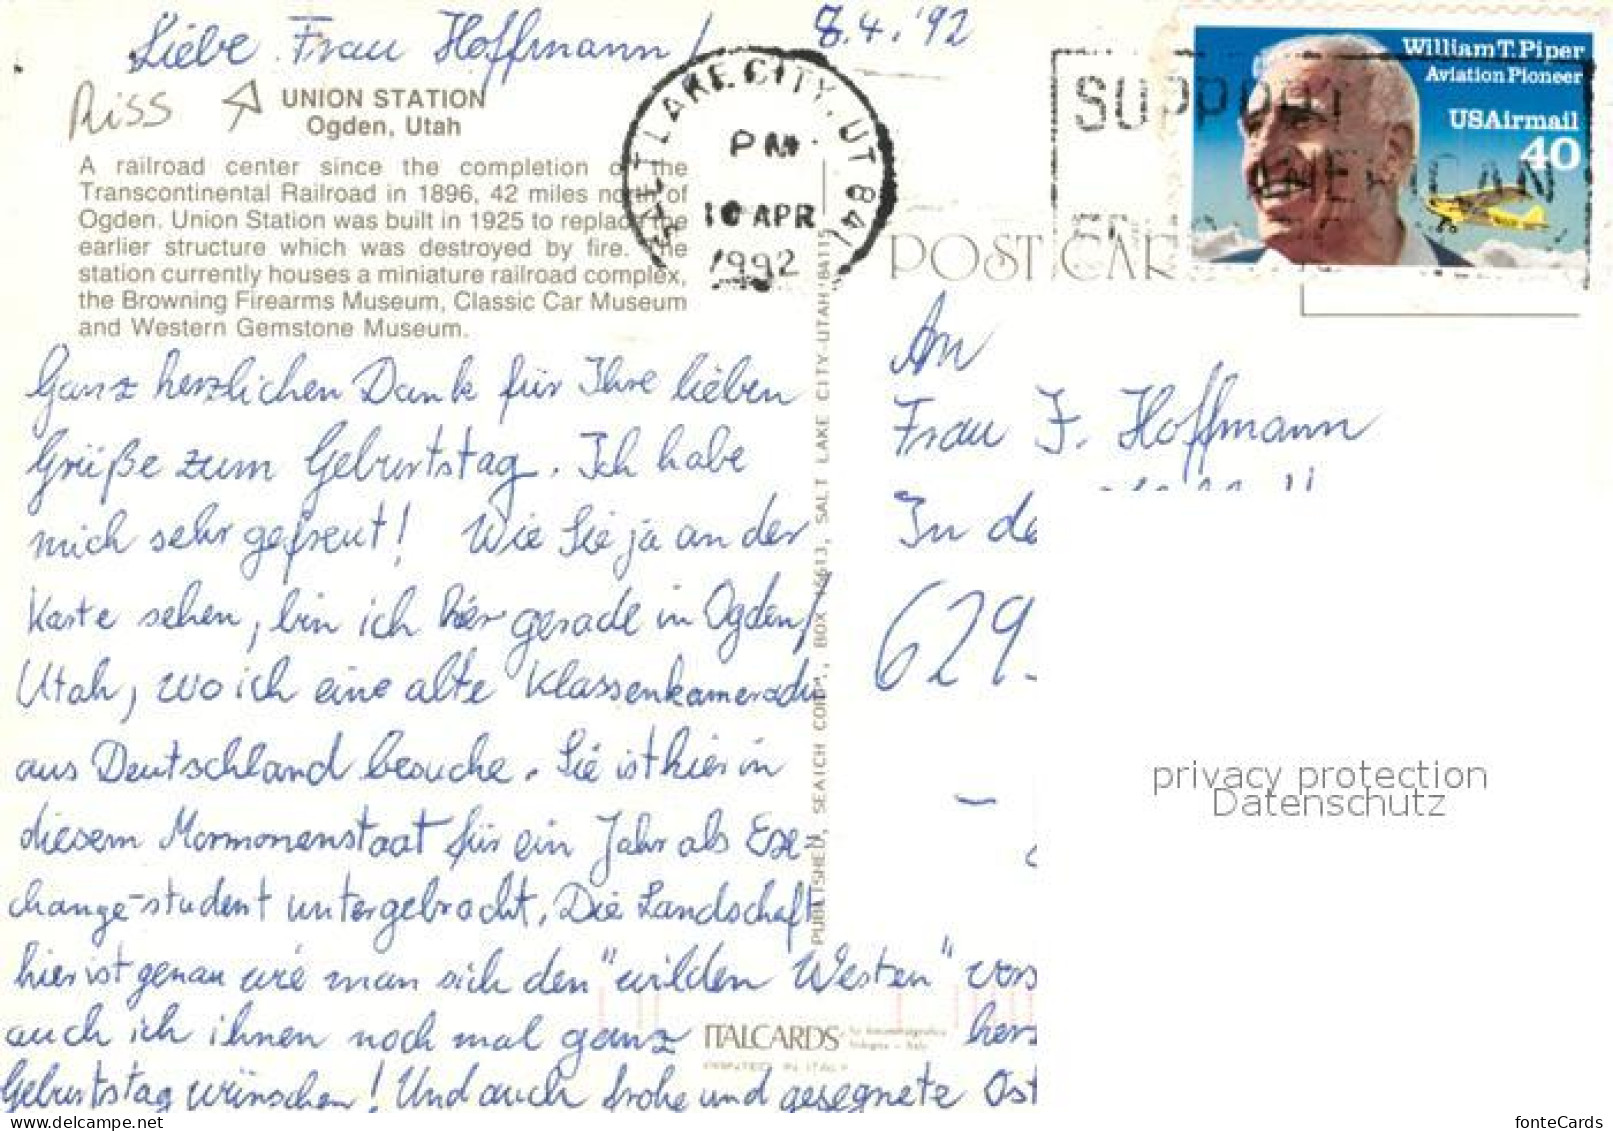 Liebe Frau Hoffmann! 8.4.'92
Riss
UNION STATION
Ogden, Utah
A railroad center since the completion of the
Transcontinental Railroad in 1896, 42 miles north of
Ogden. Union Station was built in 1925 to replace the
earlier structure which was destroyed by fire. The
station currently houses a miniature railroad complex,
the Browning Firearms Museum, Classic Car Museum
and Western Gemstone Museum.
Ganz herzlichen Dank für Ihre lieben
Grüße zum Geburtstag. Ich habe
mich sehr gefreut! Wie Sie ja an der
Karte sehen, bin ich hier gerade in Ogden/
Utah, wo ich eine alte Klassenkameradin
aus Deutschland besuche. Sie ist hier in
diesem Mormonenstaat für ein Jahr als Ex-
change-student untergebracht. Die Landschaft
hier ist genau wie man sich den "wilden Westen" vors
auch ich ihnen noch mal ganz herz
Geburtstag wünschen! Und auch frohe und gesegnete Ost
SALT LAKE CITY, UT 841
PM
10 APR
1992
SUPPORT
AMERICAN
William T. Piper
Aviation Pioneer
USAirmail
40
POST CAR
PUBLISHED, SEAICH CORP., BOX 16613, SALT LAKE CITY-UTAH 84115
An
Frau F. Hoffmann
In de
629
ITALCARDS
PRINTED IN ITALY
privacy protection
Datenschutz
www.delcampe.net
fonteCards